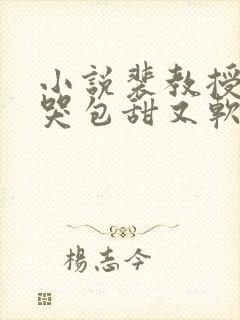 小說裴教授
哭包甜又軟
楊志今